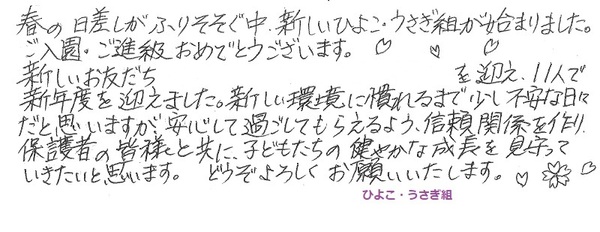 春の日差しがふりそそぐ中、新しいひよこ・うさぎ組が始まりました。
ご入園・ご進級おめでとうございます。
新しいお友だち を迎え、11人で
新年度を迎えました。新しい環境に慣れるまで少し不安な日々
だと思いますが、安心して過ごしてもらえるよう、信頼関係を作り、
保護者の皆様と共に、子どもたちの健やかな成長を見守って
いきたいと思います。 どうぞよろしくお願いいたします。
ひよこ・うさぎ組